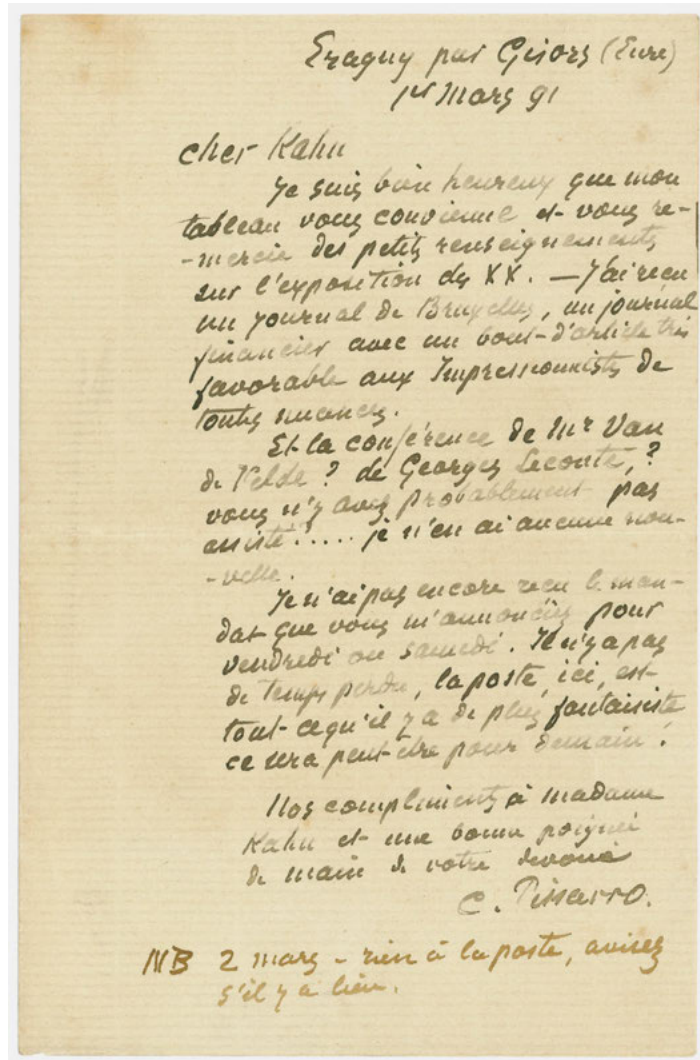 Eragny par Gisors (Eure)
1er Mars 91
cher Kahn
Je suis bien heureux que mon
tableau vous convienne et vous re-
-mercie des petits renseignements
sur l'exposition des XX. — J'ai reçu
un journal de Bruxelles, un journal
financier avec un bout-d'article très
favorable aux Impressionnistes de
toutes nuances.
Et la conférence de Mr Van
de Velde ? de Georges Lecomte, ?
vous n'y avez probablement pas
assisté ..... je n'en ai aucune nou-
-velle.
Je n'ai pas encore reçu le man-
dat que vous m'annonciez pour
vendredi ou samedi. Il n'y a pas
de temps perdu, la poste, ici, est
tout ce qu'il y a de plus fantaisiste
ce sera peut-etre pour demain !
Nos compliments à madame
Kahn et une bonne poignée
de main de votre dévoué
C. Pissarro.
NB 2 mars - rien à la poste, avisez
s'il y a lieu.